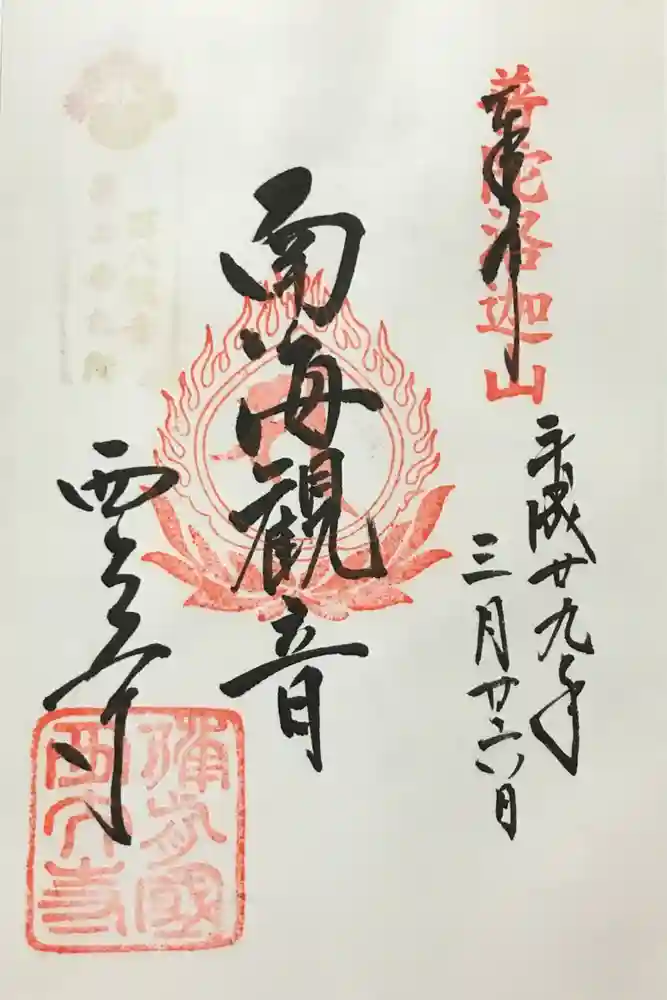 普陀洛迦山
奉拝
平成廿九年
三月廿六日
南海観音
西大寺
備前國
西大寺